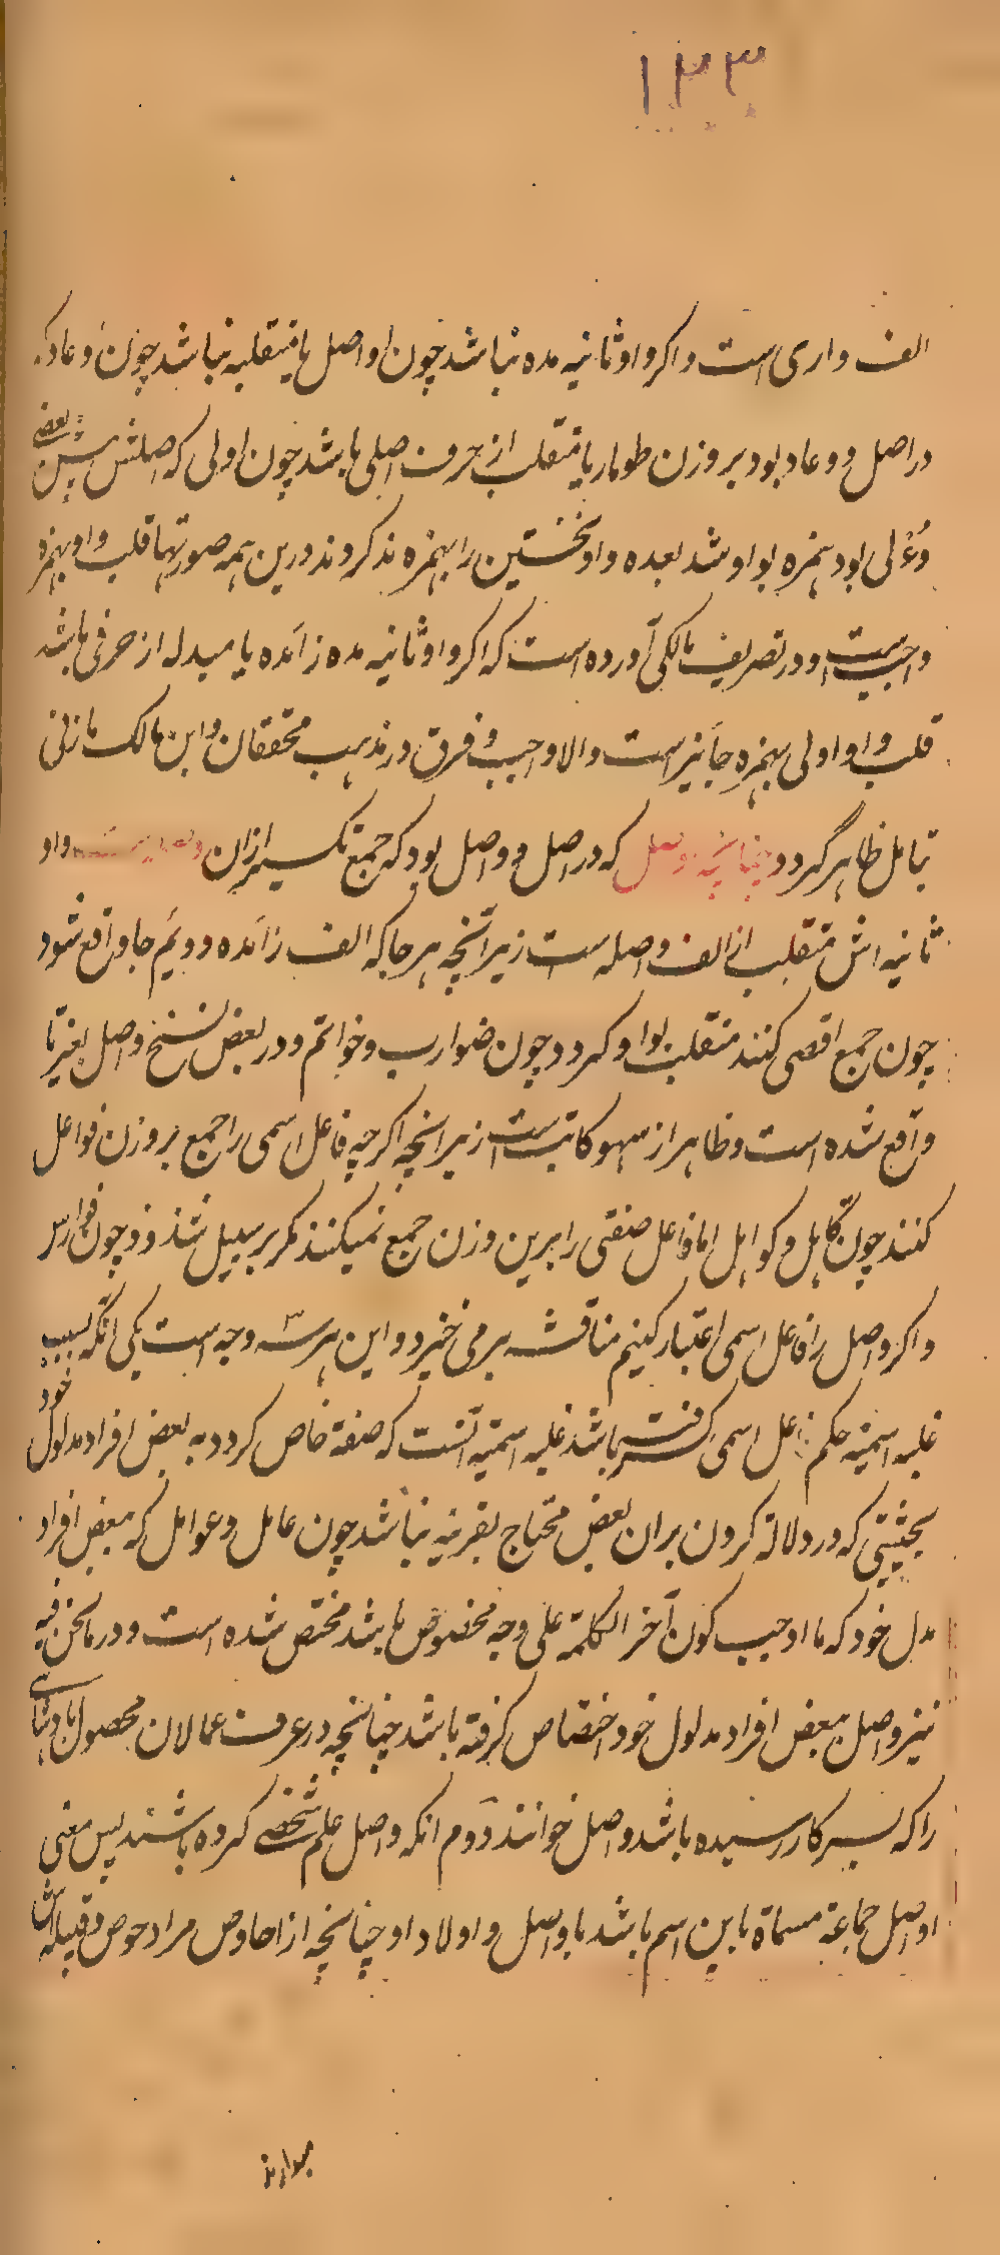 ۱۲۳
الف واری است و اکر واو ثانیه مده نباشد چون اواصل یا منقلبه نباشد چون وعاد که
در اصل ووعاد بود بر وزن طومار یا منقلب از حرف اصلی باشد چون اولی که اصلش پیش بعضی
وُءْلی بود همزه بواو شد بعده واو نخستین را بهمزه بدل کردند درین همه صورتها قلب واو بهمزه
واجب است و در تصریف مالکی آورده است که اکر واو ثانیه مده زائده یا مبدله از حرفی باشد
قلب واو اولی بهمزه جائز است والا واجب و فرق در مذهب محققان و ابن مالک مازنی
بتامل ظاهر گردد چنانچه اواصل که در اصل وواصل بود که جمع تکسیر ازان واو
ثانیه اش منقلب از الف واصله است زیرانچه هر جا که الف زائده دوئم جا واقع شود
چون جمع اقصی کنند منقلب بواو کردد چون ضوارب و خواتم و در بعض نسخ واصل بغیر تا
واقع شده است و ظاهر از سهو کاتب است زیرانچه اکر چه فاعل اسمی را جمع بر وزن فواعل
کنند چون کاهل و کواهل اما فاعل صفتی را برین وزن جمع نمیکنند مکر بر سبیل شذوذ چون فوارس
و اکر واصل را فاعل اسمی اعتبار کنیم مناقشه بر می خیزد و این بر سه وجه است یکی انکه بسبب
غلبه اسمیة حکم فاعل اسمی کرفته باشد غلبه اسمیة آنست که صفة خاص کردد به بعض افراد مدلول خود
بحیثیتی که در دلالة کردن بران بعض محتاج بقرینه نباشد چون عامل و عوامل که ببعض افراد
مدلول خود که ما اوجب کون آخر الکلمة علی وجه مخصوص باشد مختص شده است و در مانحن فیه
نیز واصل ببعض افراد مدلول خود اختصاص کرفته باشد چنانچه در عرف عمالان محصول
را که بسرکار رسیده باشد واصل خوانند دوم انکه واصل علم شخصی کرده باشند پس معنی
اواصل جماعة مسماة باین اسم باشد یا واصل و اولاد او چنانچه از احاوص مراد حوص و قبیله اش